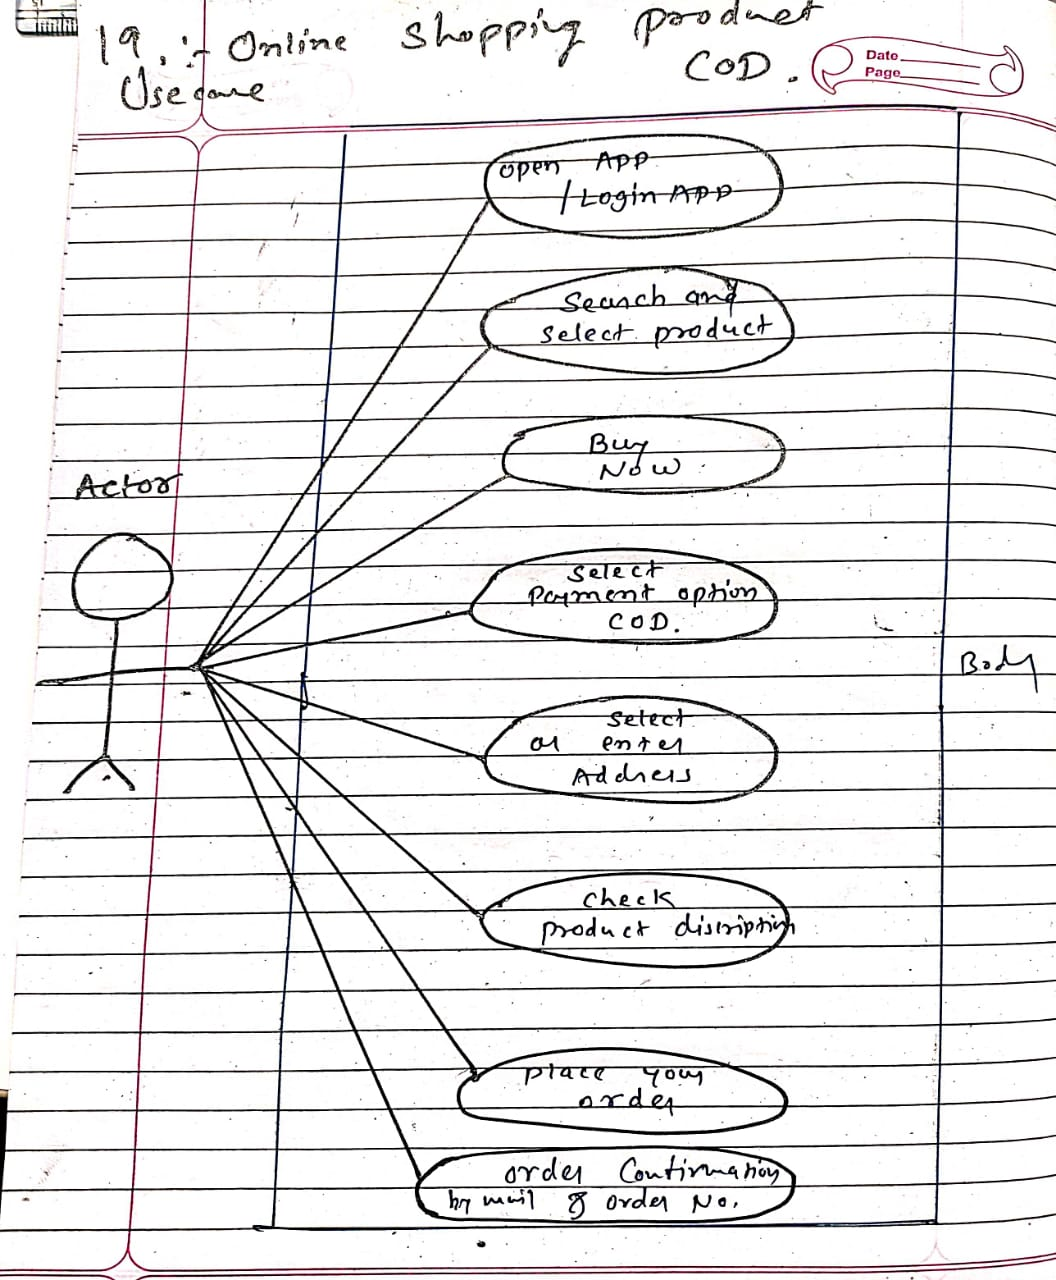 19. :- Online shopping product
COD.
Usecase
Date
Page
open App
/ Login APP
Search and
select product
Buy
Now
Actor
select
payment option
COD.
Body
select
or enter
Address
check
product discription
place your
order
order Confirmation
by mail & order No.